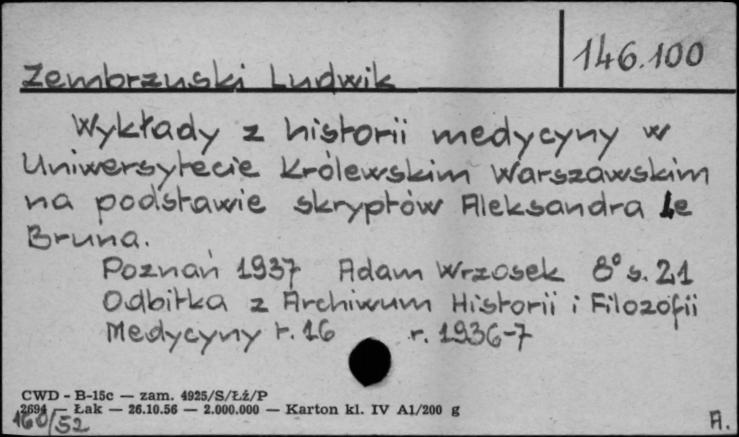 146.100
Zembrzuski Ludwik
Wykłady z historii medycyny w
Uniwersytecie Królewskim Warszawskim
na podstawie skryptów Aleksandra Le
Bruna.
Poznań 1937 Adam Wrzosek 8° s. 21
Odbitka z Archiwum Historii i Filozofii
Medycyny t. 16 r. 1936-7
CWD - B-15c — zam. 4925/S/Łż/P
2694 — Łak — 26.10.56 — 2.000.000 — Karton kl. IV A1/200 g
160/52
A.